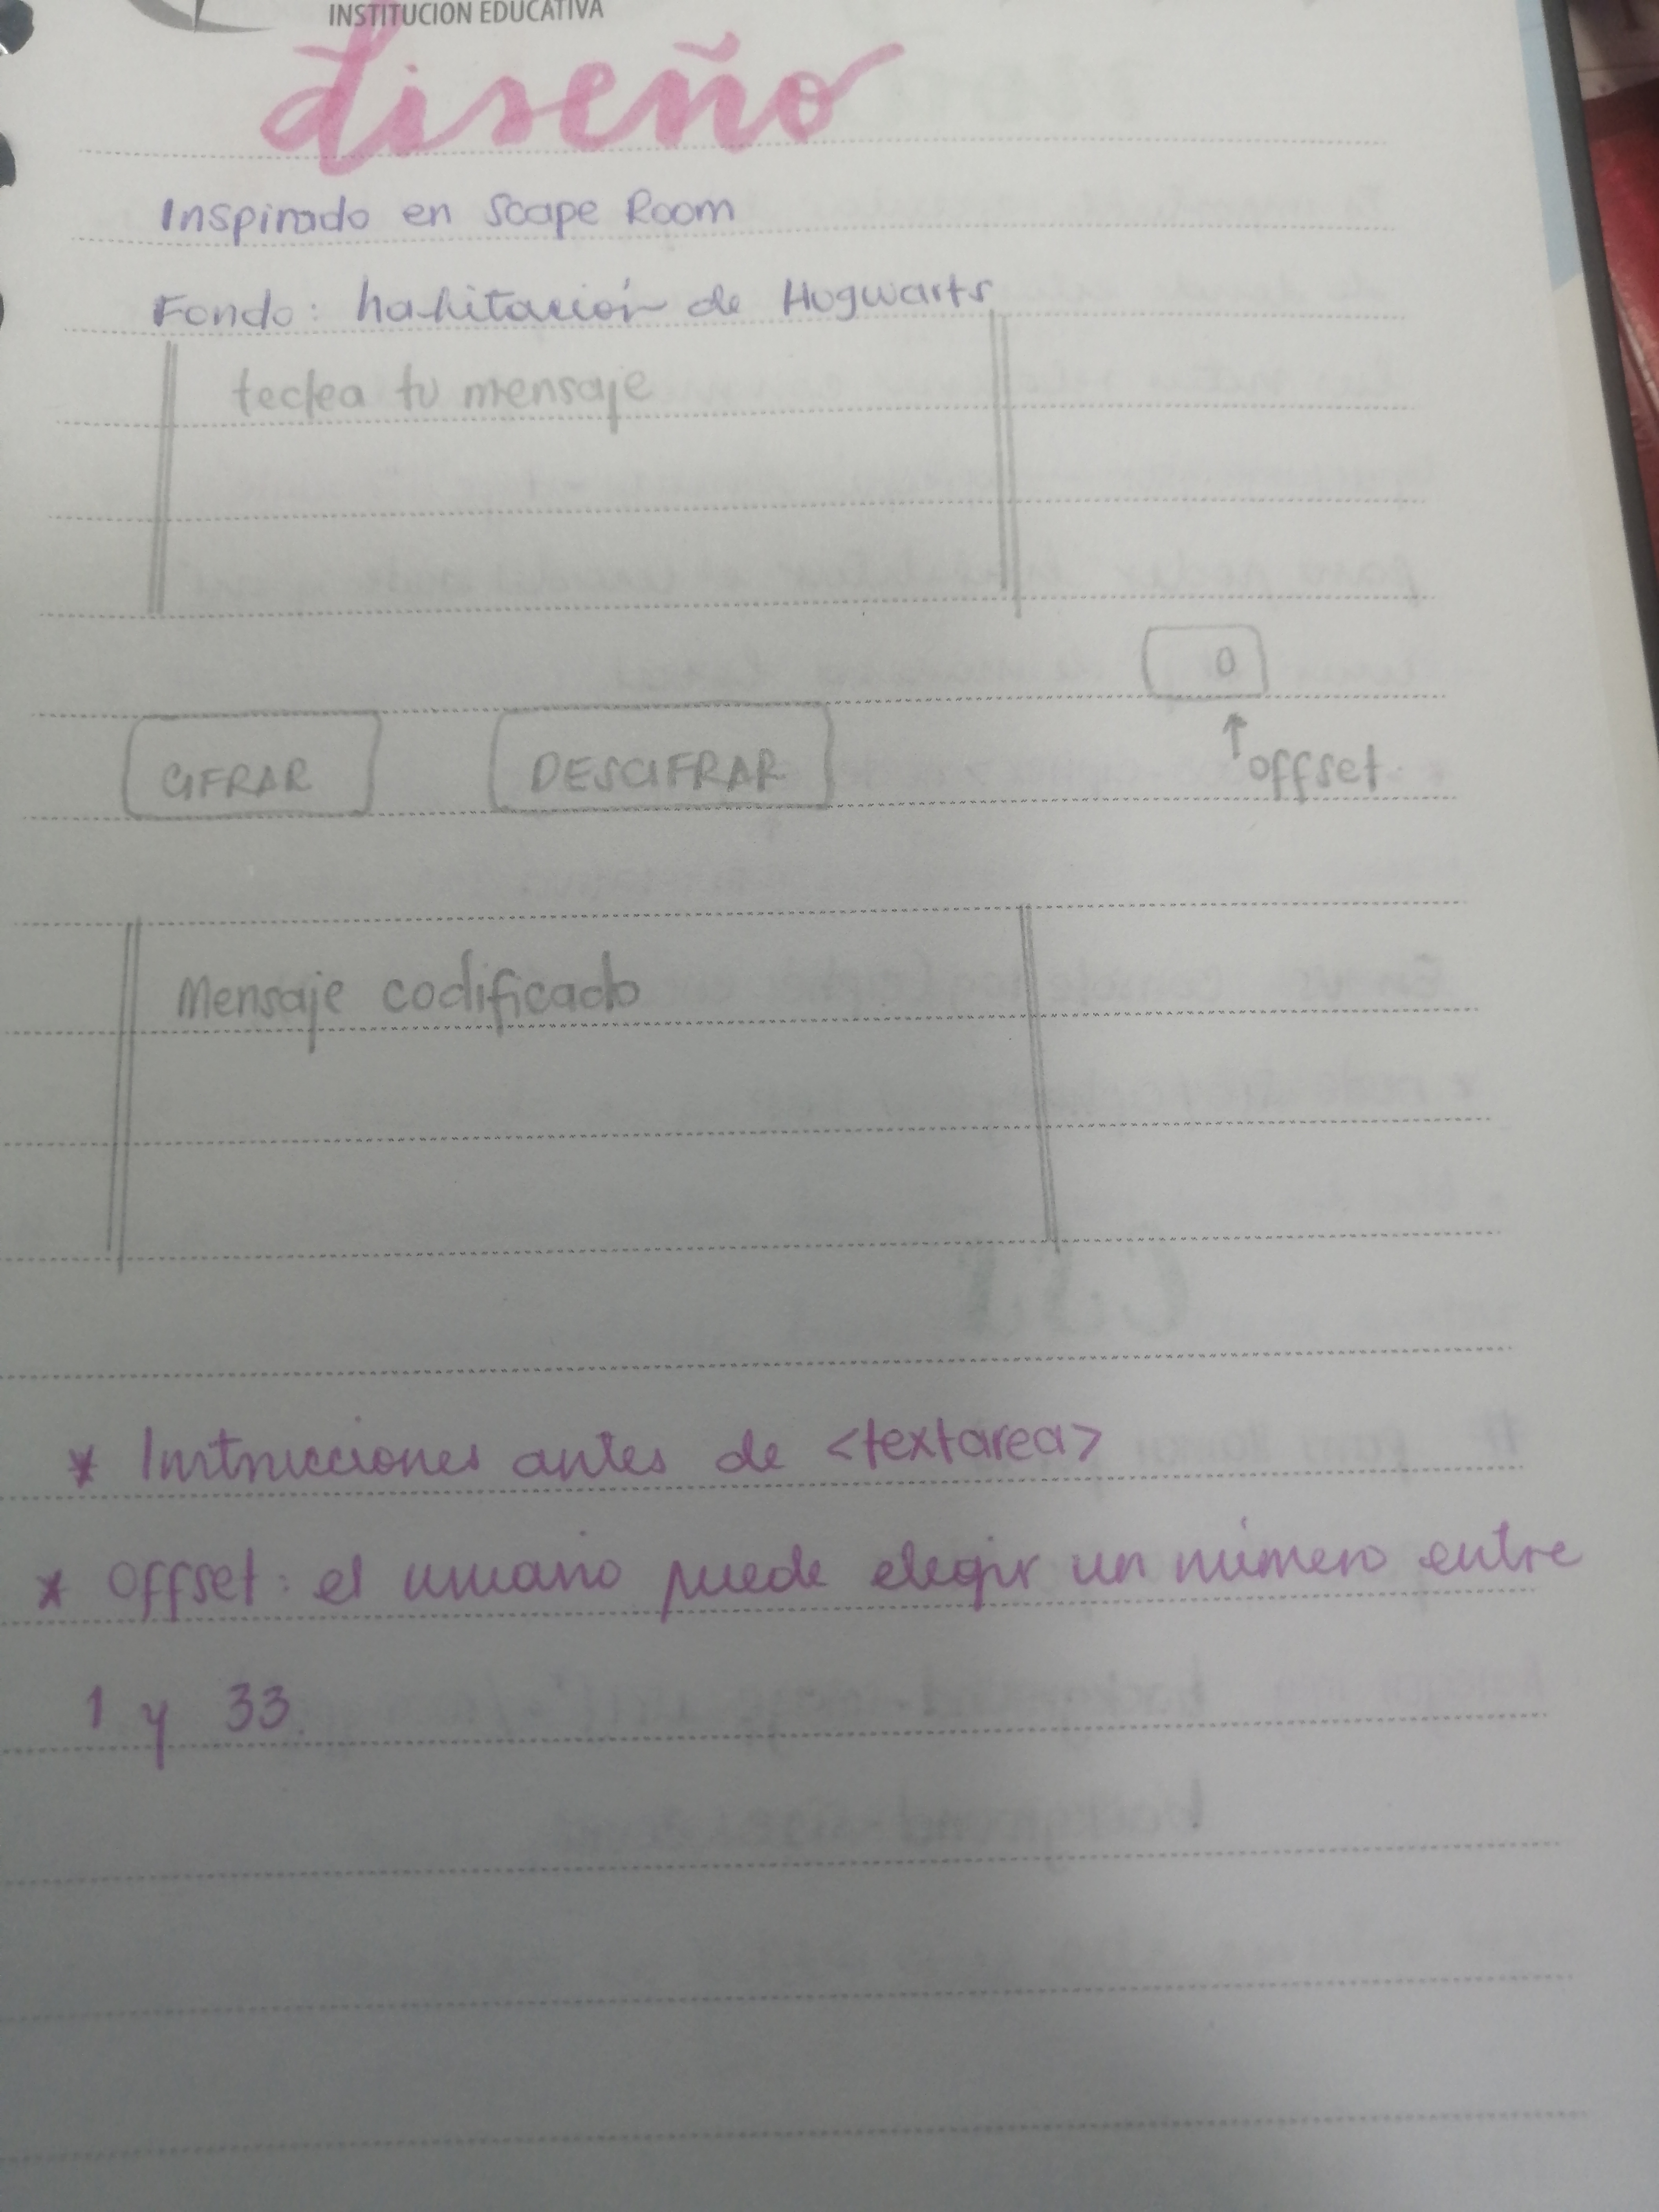 INSTITUCION EDUCATIVA
diseño
Inspirado en Scape Room
Fondo: habitación de Hogwarts
teclea tu mensaje
0
CIFRAR DESCIFRAR offset
Mensaje codificado
* Instrucciones antes de <textarea>
* Offset: el usuario puede elegir un número entre
1 y 33.